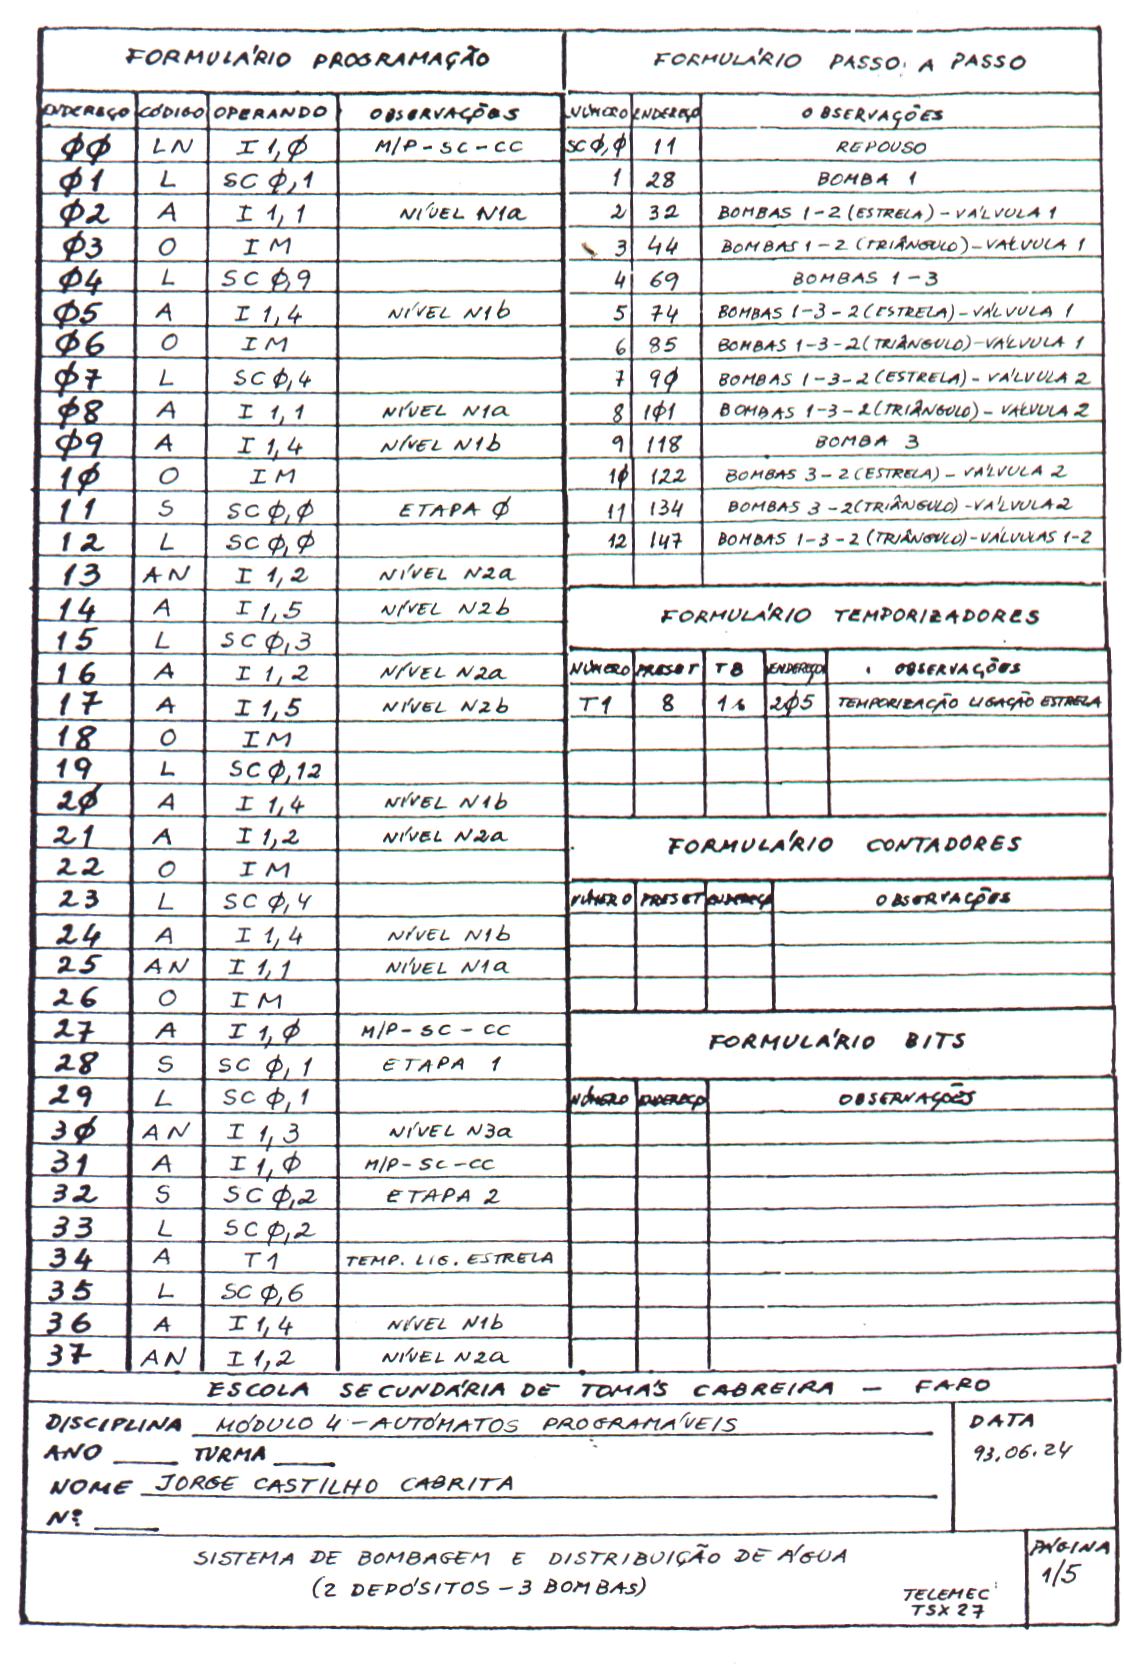 FORMULÁRIO PROGRAMAÇÃO
ENDEREÇO CÓDIGO OPERANDO OBSERVAÇÕES
ØØ LN I 1,Ø M/P-SC-CC
Ø1 L SC Ø,1
Ø2 A I 1,1 NÍVEL N1a
Ø3 O IM
Ø4 L SC Ø,9
Ø5 A I 1,4 NÍVEL N1b
Ø6 O IM
Ø7 L SC Ø,4
Ø8 A I 1,1 NÍVEL N1a
Ø9 A I 1,4 NÍVEL N1b
1Ø O IM
11 S SC Ø,Ø ETAPA Ø
12 L SC Ø,Ø
13 AN I 1,2 NÍVEL N2a
14 A I 1,5 NÍVEL N2b
15 L SC Ø,3
16 A I 1,2 NÍVEL N2a
17 A I 1,5 NÍVEL N2b
18 O IM
19 L SC Ø,12
2Ø A I 1,4 NÍVEL N1b
21 A I 1,2 NÍVEL N2a
22 O IM
23 L SC Ø,4
24 A I 1,4 NÍVEL N1b
25 AN I 1,1 NÍVEL N1a
26 O IM
27 A I 1,Ø M/P-SC-CC
28 S SC Ø,1 ETAPA 1
29 L SC Ø,1
3Ø AN I 1,3 NÍVEL N3a
31 A I 1,Ø M/P-SC-CC
32 S SC Ø,2 ETAPA 2
33 L SC Ø,2
34 A T1 TEMP. LIG. ESTRELA
35 L SC Ø,6
36 A I 1,4 NÍVEL N1b
37 AN I 1,2 NÍVEL N2a
FORMULÁRIO PASSO A PASSO
NÚMERO ENDEREÇO OBSERVAÇÕES
SC Ø,Ø 11 REPOUSO
1 28 BOMBA 1
2 32 BOMBAS 1-2 (ESTRELA) - VÁLVULA 1
3 44 BOMBAS 1-2 (TRIÂNGULO) - VALVULA 1
4 69 BOMBAS 1-3
5 74 BOMBAS 1-3-2 (ESTRELA) - VÁLVULA 1
6 85 BOMBAS 1-3-2 (TRIÂNGULO) - VÁLVULA 1
7 9Ø BOMBAS 1-3-2 (ESTRELA) - VÁLVULA 2
8 1Ø1 BOMBAS 1-3-2 (TRIÂNGULO) - VÁLVULA 2
9 118 BOMBA 3
1Ø 122 BOMBAS 3-2 (ESTRELA) - VÁLVULA 2
11 134 BOMBAS 3-2 (TRIÂNGULO) - VÁLVULA 2
12 147 BOMBAS 1-3-2 (TRIÂNGULO) - VÁLVULAS 1-2
FORMULÁRIO TEMPORIZADORES
NÚMERO PRESET TB ENDEREÇO OBSERVAÇÕES
T1 8 1s 2Ø5 TEMPORIZAÇÃO LIGAÇÃO ESTRELA
FORMULÁRIO CONTADORES
NÚMERO PRESET ENDEREÇO OBSERVAÇÕES
FORMULÁRIO BITS
NÚMERO ENDEREÇO OBSERVAÇÕES
ESCOLA SECUNDÁRIA DE TOMÁS CABREIRA - FARO
DISCIPLINA MÓDULO 4 - AUTÓMATOS PROGRAMÁVEIS
ANO TURMA
NOME JORGE CASTILHO CABRITA
Nº
DATA
93.06.24
SISTEMA DE BOMBAGEM E DISTRIBUIÇÃO DE ÁGUA
(2 DEPÓSITOS - 3 BOMBAS)
TELEMEC
TSX 27
PÁGINA
1/5